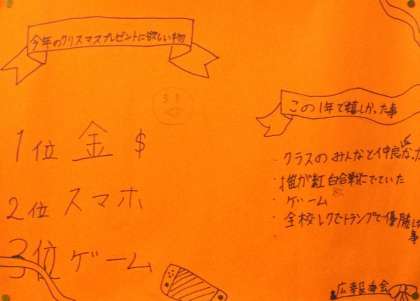 今年のクリスマスプレゼントに欲しい物
1位 金 $
2位 スマホ
3位 ゲーム
この1年で嬉しかった事
・クラスのみんなと仲良
・推が紅白合戦にでていた
・ゲーム
・全校レクでトランプで優勝
事
広報委員会